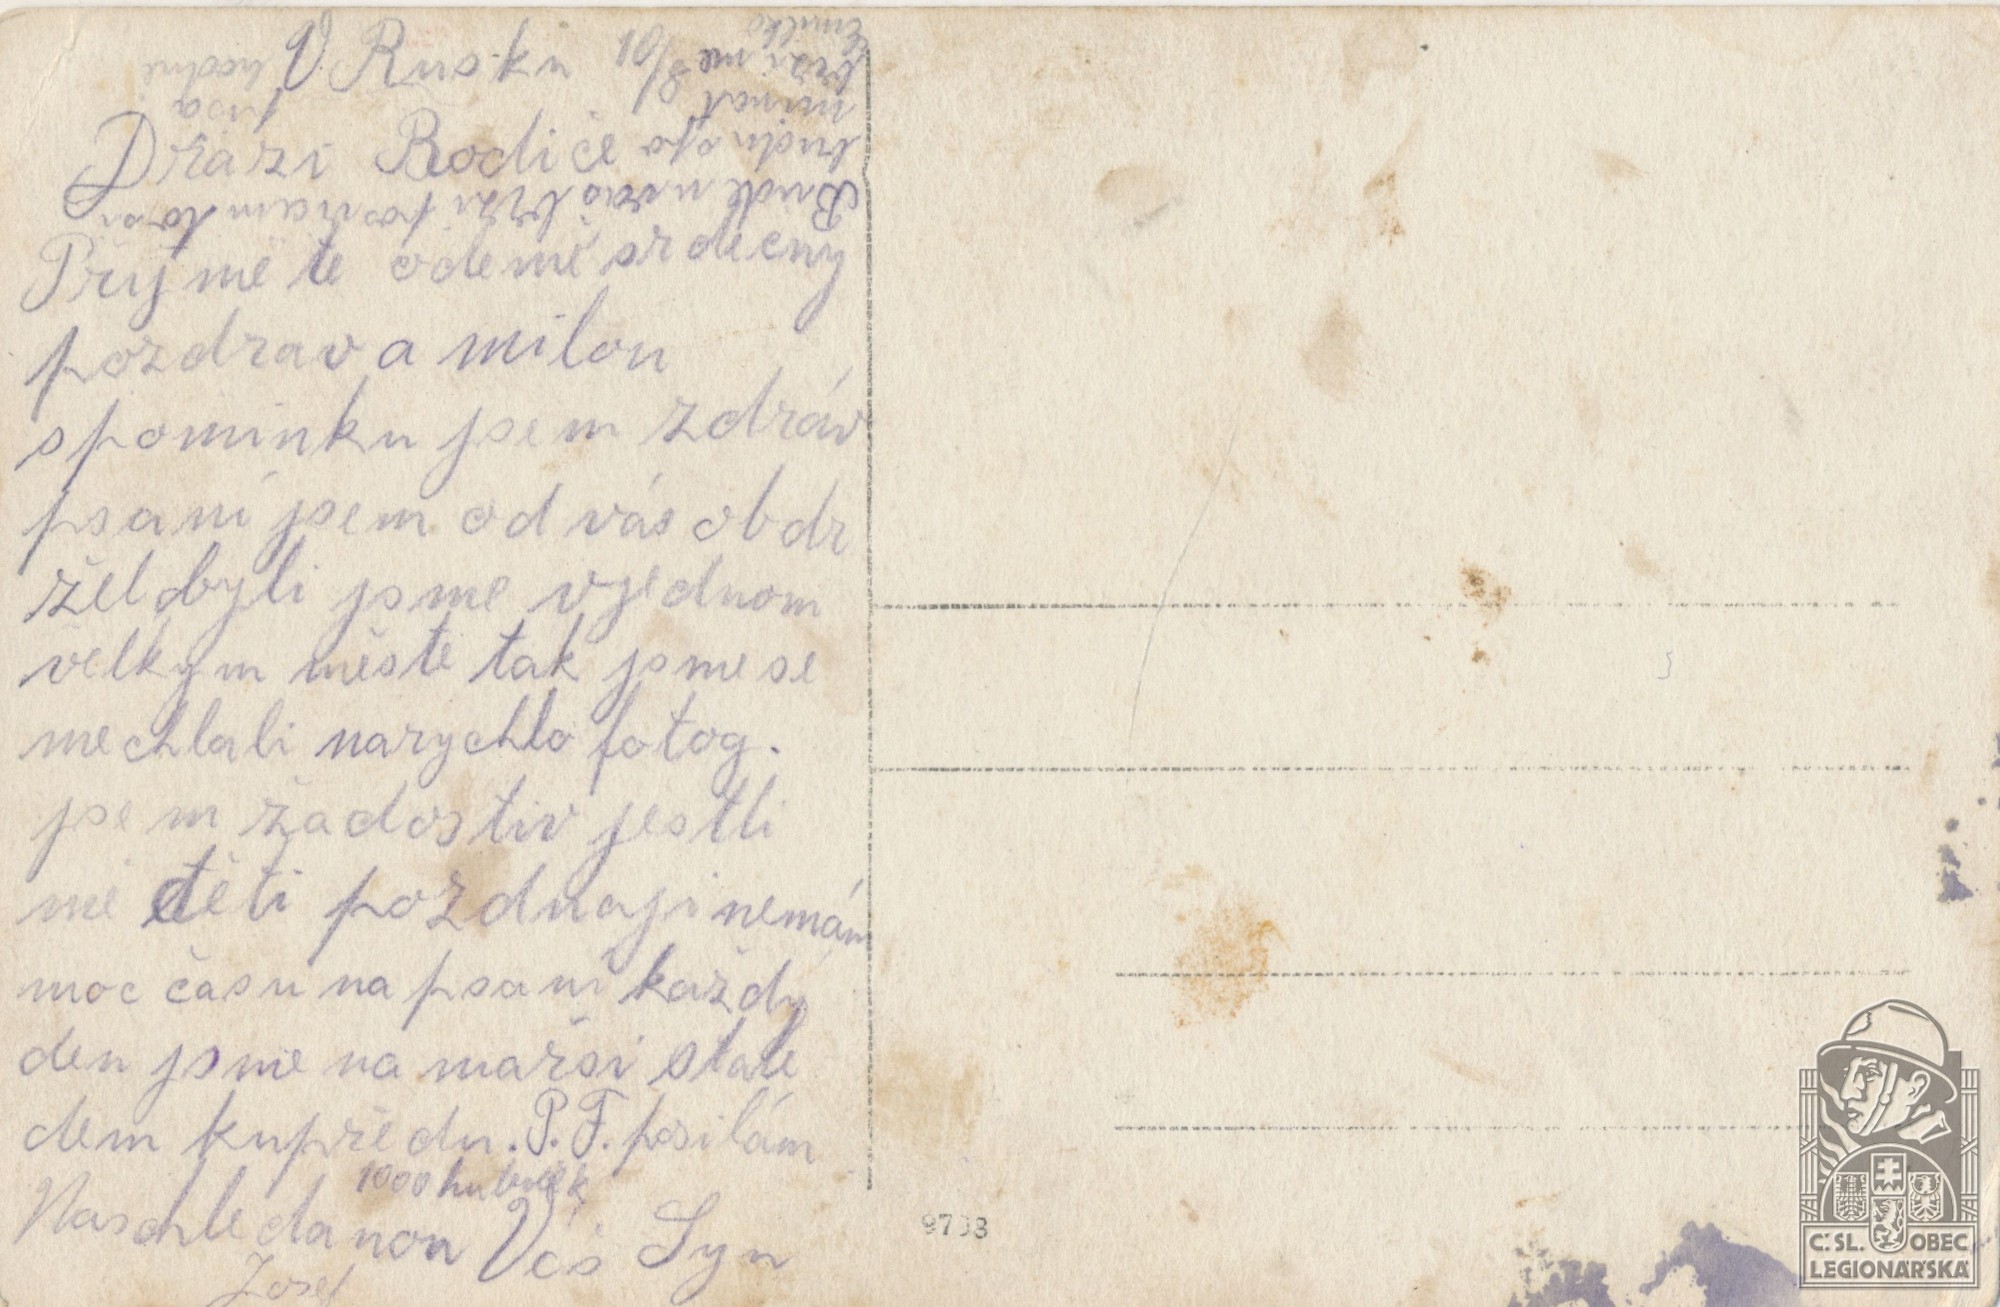 V Rusku 8/10
Drazí Rodiče
Prijmě te odemě srdečny
pozdrav a milou
spominku jsem zdráv
psaní jsem od vás obdr
žel byli jsme vjednom
velkym městě tak jsme se
nechlali narychlo fotog.
jsem žadostiv jestli
mě děti pozdnaji nemám
moc času na psaní každy
den jsme na marši stale
dem kupředu. P. F. posilám
1000 hubiček
Naschledanou Váš Syn
Josef
Bude u vás brzi posviceni
budu spo
minat
brzi me
Emilko
psa
hodně
9703
Č:SL. OBEC
LEGIONÁŘSKÁ